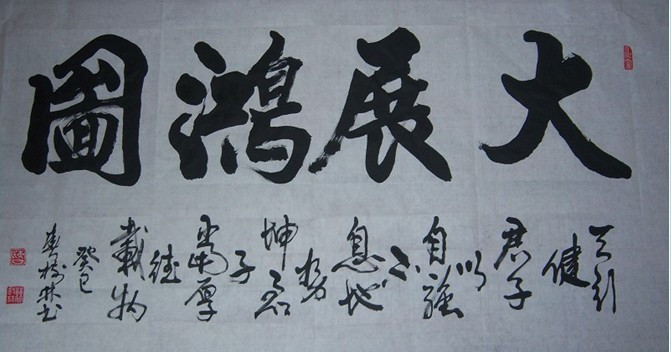 大展鴻圖
天行
健
君子
以
自強
不
息地
勢
坤君
子
厚
德
載物
癸巳